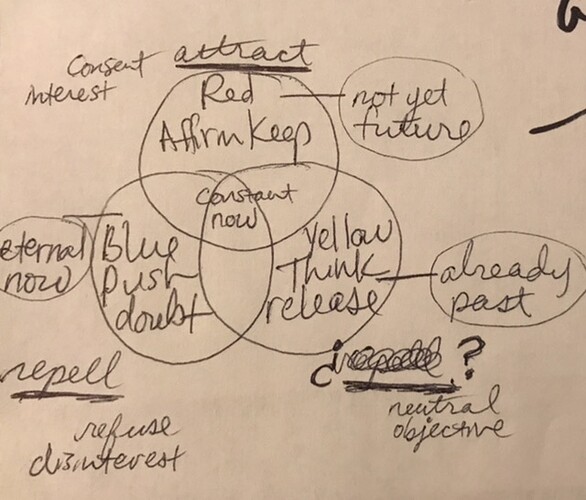 Consent
interest
attract
Red
Affirm Keep
not yet
future
constant
now
eternal
now
Blue
Push
doubt
Yellow
Think
release
already
past
repell
refuse
disinterest
¿ ?
neutral
objective